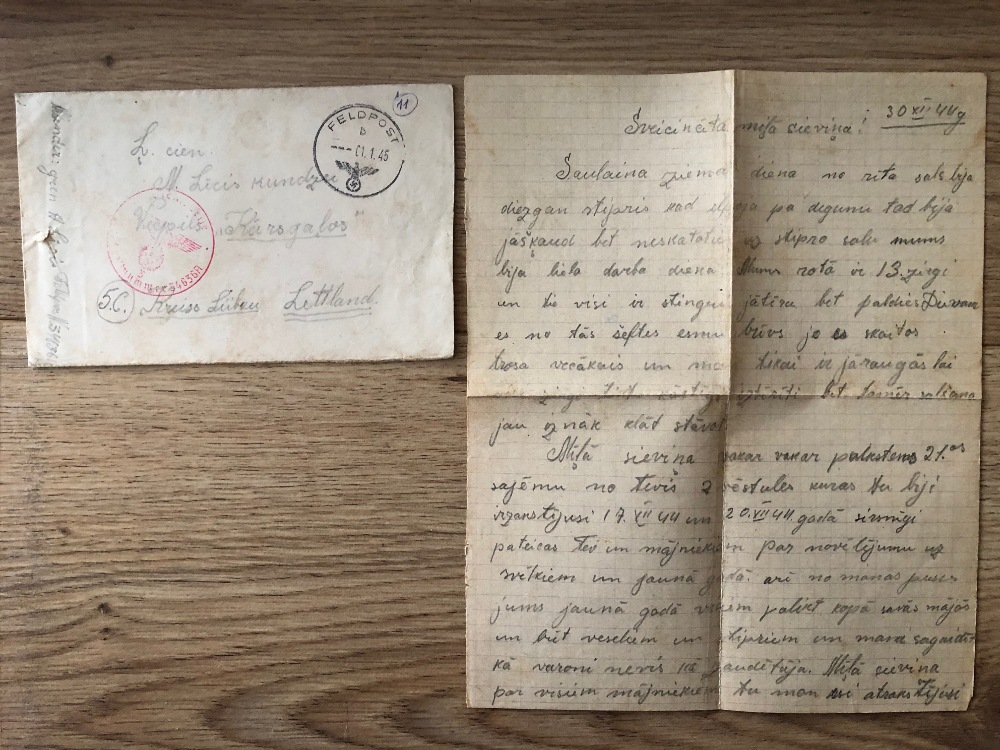 11
FELDPOST
b
--- 01.1.45
L. cien.
A. Līcis kundzei
Viepils „Kārsgalos”
54636A
5.C. Kreiss Libau Lettland.
30 XII 44g
Sveicināta miļa sieviņa!
Saulaina ziema diena no rīta sals bija
diezgan stiprs kad pa degunu tad bija
jāšķaud bet neskatoties uz stipro salu mums
bija liela darba diena Mums rotā ir 13. zirgi
un to visi ir stingri bet paldies Dievam
es no tās šeftes esmu brīvs jo es skaitos
trosa vecākais un man tikai ir jāraugās lai
iztīrīti bet tomēr salšana
jau iznāk klāt stāvot
Miļā sieviņa vakar vakar pulkstens 21.os
saņēmu no Tevis 2 vēstules kuras tu biji
izrakstījusi 17. XII 44 un 20. XII 44. gadā sirsnīgi
pateicos Tev un mājniekiem par novēlējumu uz
svētkiem un jaunā gadā. arī no manas puses
jums jaunā gadā visiem palikt kopā savās mājās
un būt veseliem un stipriem un mani sagaidīt
kā varoni nevis kā zaudētāju. Miļā sieviņa
par visiem mājniekiem tu man esi atrakstījusi